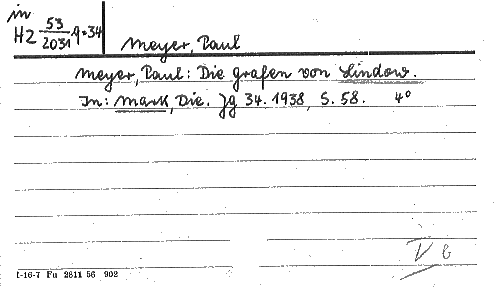 in
HZ 53/2031 q=34
Meyer, Paul
Meyer, Paul: Die Grafen von Lindow.
In: Mark, Die. Jg 34. 1938, S. 58. 4°
V 6
I-16-7 Fu 2811 56 902